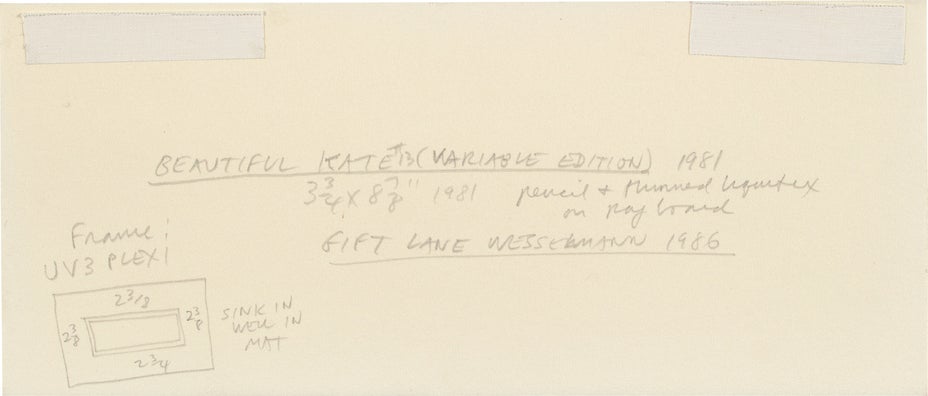 BEAUTIFUL KATE #13 (VARIABLE EDITION) 1981
3 3/4 x 8 7/8" 1981 pencil + thinned liquitex
on rag board
GIFT LANE WESSELMANN 1986
Frame:
UV3 PLEXI
2 3/8
2 3/8
2 3/8
2 3/4
SINK IN
WELL IN
MAT